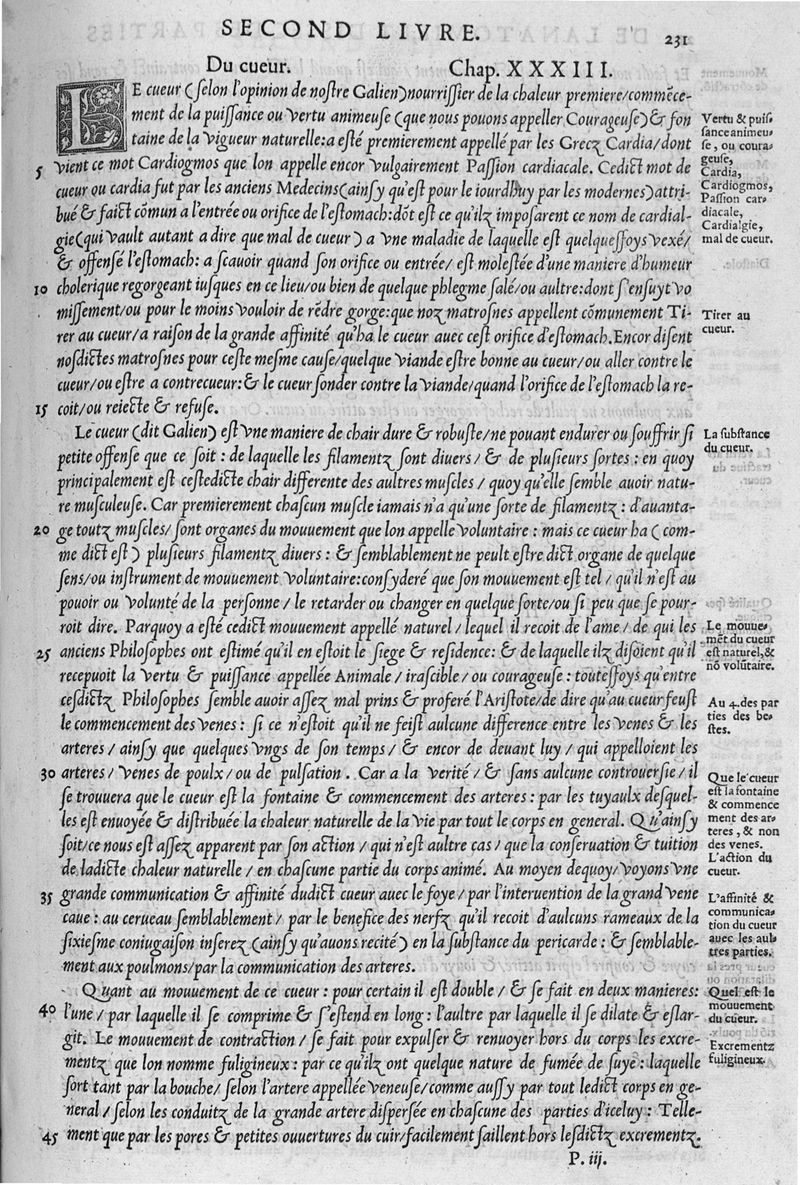 SECOND LIVRE.
231
Du cueur.
Chap. XXXIII.
LE cueur (selon l'opinion de nostre Galien) nourrissier de la chaleur premiere/commẽce-
ment de la puissance ou vertu animeuse (que nous pouons appeller Courageuse) & fon
taine de la vigueur naturelle: a esté premierement appellé par les Grecz Cardia/dont
5 vient ce mot Cardiogmos que lon appelle encor vulgairement Passion cardiacale. Cedict mot de
cueur ou cardia fut par les anciens Medecins (ainsy qu'est pour le iourdhuy par les modernes) attri-
bué & faict cõmun a l'entrée ou orifice de l'estomach: dõt est ce qu'ilz imposarent ce nom de cardial-
gie (qui vault autant a dire que mal de cueur) a vne maladie de laquelle est quelquessoys vexé/
& offensé l'estomach: a scauoir quand son orifice ou entrée/ est molestée d'une maniere d'humeur
10 cholerique regorgeant iusques en ce lieu/ou bien de quelque phlegme salé/ou aultre: dont s'ensuyt vo
missement/ou pour le moins vouloir de rẽdre gorge: que noz matrosnes appellent cõmunement Ti-
rer au cueur/a raison de la grande affinité qu'ha le cueur auec cest orifice d'estomach. Encor disent
nosdictes matrosnes pour ceste mesme cause/quelque viande estre bonne au cueur/ou aller contre le
cueur/ou estre a contrecueur: & le cueur sonder contre la viande/quand l'orifice de l'estomach la re-
15 coit/ou reiecte & refuse.
Le cueur (dit Galien) est vne maniere de chair dure & robuste/ne pouant endurer ou souffrir si
petite offense que ce soit: de laquelle les filamentz sont diuers/ & de plusieurs sortes: en quoy
principalement est cestedicte chair differente des aultres muscles/ quoy qu'elle semble auoir natu-
re musculeuse. Car premierement chascun muscle iamais n'a qu'une sorte de filamentz: d'auanta-
20 ge toutz muscles/ sont organes du mouuement que lon appelle voluntaire: mais ce cueur ha (com-
me dict est) plusieurs filamentz diuers: & semblablement ne peult estre dict organe de quelque
sens/ou instrument de mouuement voluntaire: consyderé que son mouuement est tel/ qu'il n'est au
pouoir ou volunté de la personne/ le retarder ou changer en quelque sorte/ou si peu que se pour-
roit dire. Parquoy a esté cedict mouuement appellé naturel/ lequel il recoit de l'ame/ de qui les
25 anciens Philosophes ont estimé qu'il en estoit le siege & residence: & de laquelle ilz disoient qu'il
recepuoit la vertu & puissance appellée Animale/ irascible/ ou courageuse: toutessoys qu'entre
cesdictz Philosophes semble auoir assez mal prins & proferé l'Aristote/ de dire qu'au cueur feust
le commencement des venes: si ce n'estoit qu'il ne feist aulcune difference entre les venes & les
arteres/ ainsy que quelques vngs de son temps/ & encor de deuant luy/ qui appelloient les
30 arteres/ venes de poulx/ou de pulsation. Car a la verité/ & sans aulcune controuersie/ il
se trouuera que le cueur est la fontaine & commencement des arteres: par les tuyaulx desquel-
les est enuoyée & distribuée la chaleur naturelle de la vie par tout le corps en general. Qu'ainsy
soit/ce nous est assez apparent par son action/ qui n'est aultre cas/ que la conseruation & tuition
de ladicte chaleur naturelle/ en chascune partie du corps animé. Au moyen dequoy/ voyons vne
35 grande communication & affinité dudict cueur auec le foye/ par l'interuention de la grand vene
caue: au cerueau semblablement/ par le benefice des nerfz qu'il recoit d'aulcuns rameaux de la
sixiesme coniugaison inserez (ainsy qu'auons recité) en la substance du pericarde: & semblable-
ment aux poulmons/par la communication des arteres.
Quant au mouuement de ce cueur: pour certain il est double/ & se fait en deux manieres:
40 l'une/ par laquelle il se comprime & s'estend en long: l'aultre par laquelle il se dilate & eslar-
git. Le mouuement de contraction/ se fait pour expulser & renuoyer hors du corps les excre-
mentz que lon nomme fuligineux: par ce qu'ilz ont quelque nature de fumée de suye: laquelle
sort tant par la bouche/ selon l'artere appellée veneuse/ comme aussy par tout ledict corps en ge-
neral/ selon les conduitz de la grande artere dispersée en chascune des parties d'iceluy: Telle-
45 ment que par les pores & petites ouuertures du cuir/facilement saillent hors lesdictz excrementz.
P. iij.
Vertu & puis
sance animeu-
se, ou coura-
geuse,
Cardia,
Cardiogmos,
Passion car-
diacale,
Cardialgie,
mal de cueur.
Tirer au
cueur.
La substance
du cueur.
Le mouue-
mẽt du cueur
est naturel, &
nõ volũtaire.
Au 4. des par
ties des be-
stes.
Que le cueur
est la fontaine
& commence
ment des ar-
teres, & non
des venes.
L'action du
cueur.
L'affinité &
communica-
tion du cueur
auec les aul-
tres parties.
Quel est le
mouuement
du cueur.
Excrementz
fuligineux.